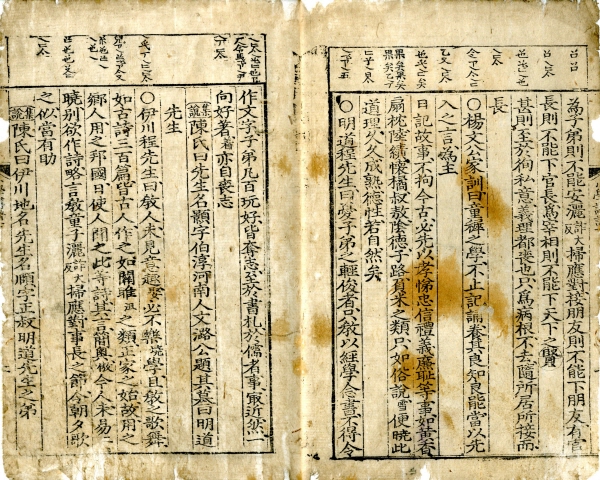 為子弟則不能安灑掃應對接朋友則不能下朋友有官
長則不能下官長為宰相則不能下天下之賢
甚則至於徇私意義理都喪也只為病根不去隨所居所接而
長
○楊文公家訓曰童穉之學不止記誦養其良知良能當以先
入之言為主
日記故事不拘今古必先以孝悌忠信禮義廉恥等事如黃香
扇枕陸績懷橘叔敖陰德子路負米之類只如俗說便曉此
道理久久成熟德性若自然矣
○明道程先生曰憂子弟之輕俊者只敎以經學念書不得令
作文字子弟凡百玩好皆奪志至於書札於儒者事最近然一
向好著亦自喪志
集說陳氏曰先生名顥字伯淳河南人文潞公題其墓曰明道
先生
○伊川程先生曰敎人未見意趣必不樂學且敎之歌舞
如古詩三百篇皆古人作之如關雎之類正家之始故用之
鄕人用之邦國日使人聞之此等詩其言簡奧今人未易
曉別欲作詩略言敎童子灑掃應對事長之節令朝夕歌
之似當有助
集說陳氏曰伊川地名先生名頤字正叔明道先生之弟